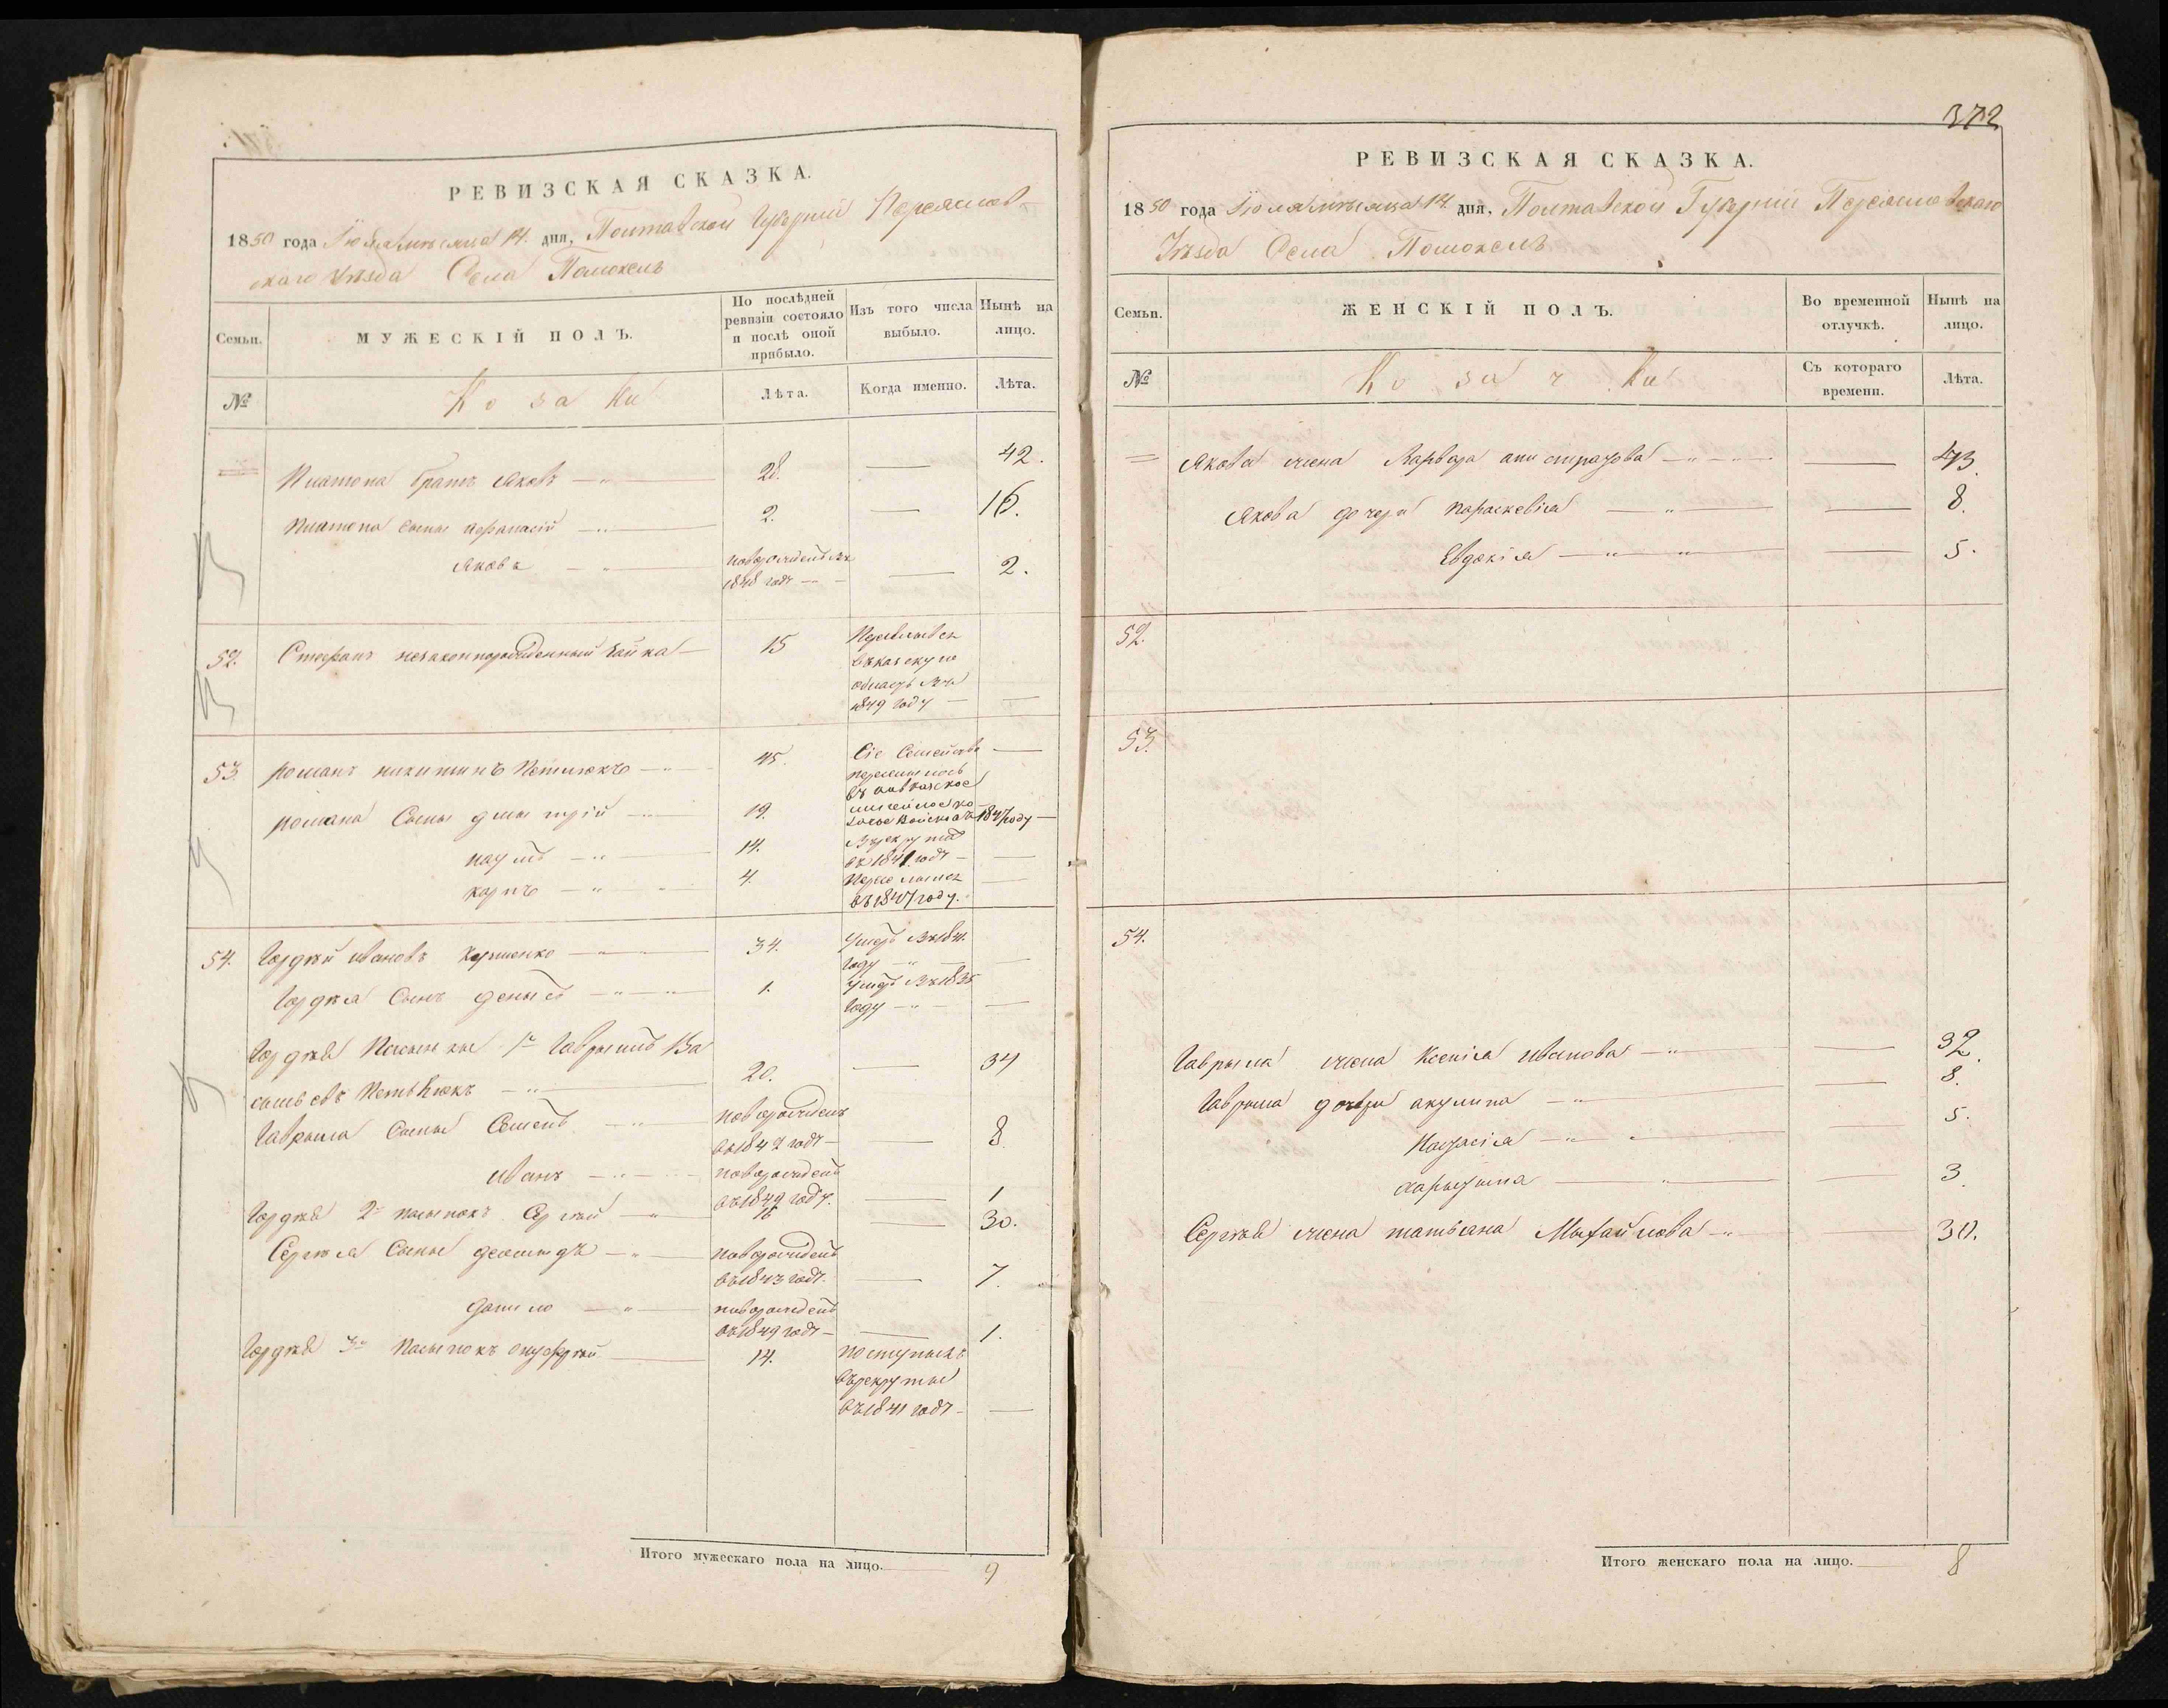 РЕВИЗСКАЯ СКАЗКА.
1850 года Іюля мѣсяца 14. дня, Полтавской Губерніи Переяслов-
скаго Уѣзда Села Помоклъ
Семьи. МУЖЕСКІЙ ПОЛЪ. По послѣдней ревизіи состояло и послѣ оной прибыло. Изъ того числа выбыло. Нынѣ на лицо.
№ Козаки Лѣта. Когда именно. Лѣта.
Платона братъ Яковъ 28. 42.
Платона сыны Афанасій 2. 16.
Яковъ новорожденъ въ 1848 году 2.
52. Стефанъ незаконнорожденный Чайка 15
области въ
1849 году
53. Романъ Никитинъ Петлюкъ 45. Сіе Семейство
переселилось
въ Кавказское
линейное ко-
зачье Войско въ 1847 году
Романа Сыны Дмытрій 19.
Наумъ 14. В рекрута
въ 1841 году
Карпъ 4. Переселился
въ 1847 году.
54. Гордѣй Ивановъ 34. Умеръ въ 1841.
году
Гордѣя Сынъ Денысъ 1. Умеръ въ 1835
году
Гордѣя Пасынки 1й Гаврыилъ Ва
сильевъ 20. 34
Гаврыла Сыны Семенъ новорожденъ
въ 1842 году 8
Иванъ новорожденъ
въ 1849 году. 1
Гордѣя 2й пасынокъ Сергѣй 16 30.
Сергѣя Сыны новорожденъ
въ 1843 году. 7.
Данило новорожденъ
въ 1849 году 1.
Гордѣя 3й Пасынокъ Онуфрѣй 14. поступылъ
въ рекруты
въ 1841 году
Итого мужескаго пола на лицо. 9
372
РЕВИЗСКАЯ СКАЗКА.
1850 года Іюля мѣсяца 14 дня, Полтавской Губерніи Переясловскаго
Уѣзда Села Помоклъ
Семьи. ЖЕНСКІЙ ПОЛЪ. Во временной отлучкѣ. Нынѣ на лицо.
№ Козачки Съ котораго времени. Лѣта.
Якова жена Варвара 43.
Якова дочери Параскевія 8.
Евдокія 5.
52.
53.
54.
Гаврыла жена Ксенія Иванова 32.
Гаврыла дочери Акулина 8.
Настасія 5.
3.
Сергѣя жена Татьяна Мыхайлова 30.
Итого женскаго пола на лицо. 8